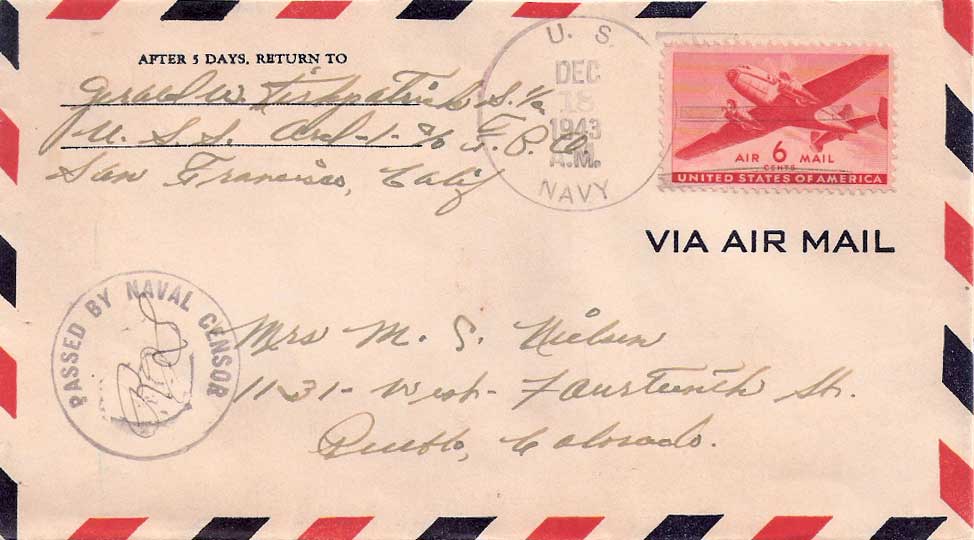 AFTER 5 DAYS, RETURN TO
Gerald W. Kirkpatrick S. 1/c
U. S. S. Ard-1- % F. P. O.
San Francisco, Calif
U. S.
DEC
18
1943
A.M.
NAVY
AIR 6 MAIL
CENTS
UNITED STATES OF AMERICA
VIA AIR MAIL
PASSED BY NAVAL CENSOR
Mrs M. S. Nielsen
1131- West- Fourteenth St.
Pueblo, Colorado.